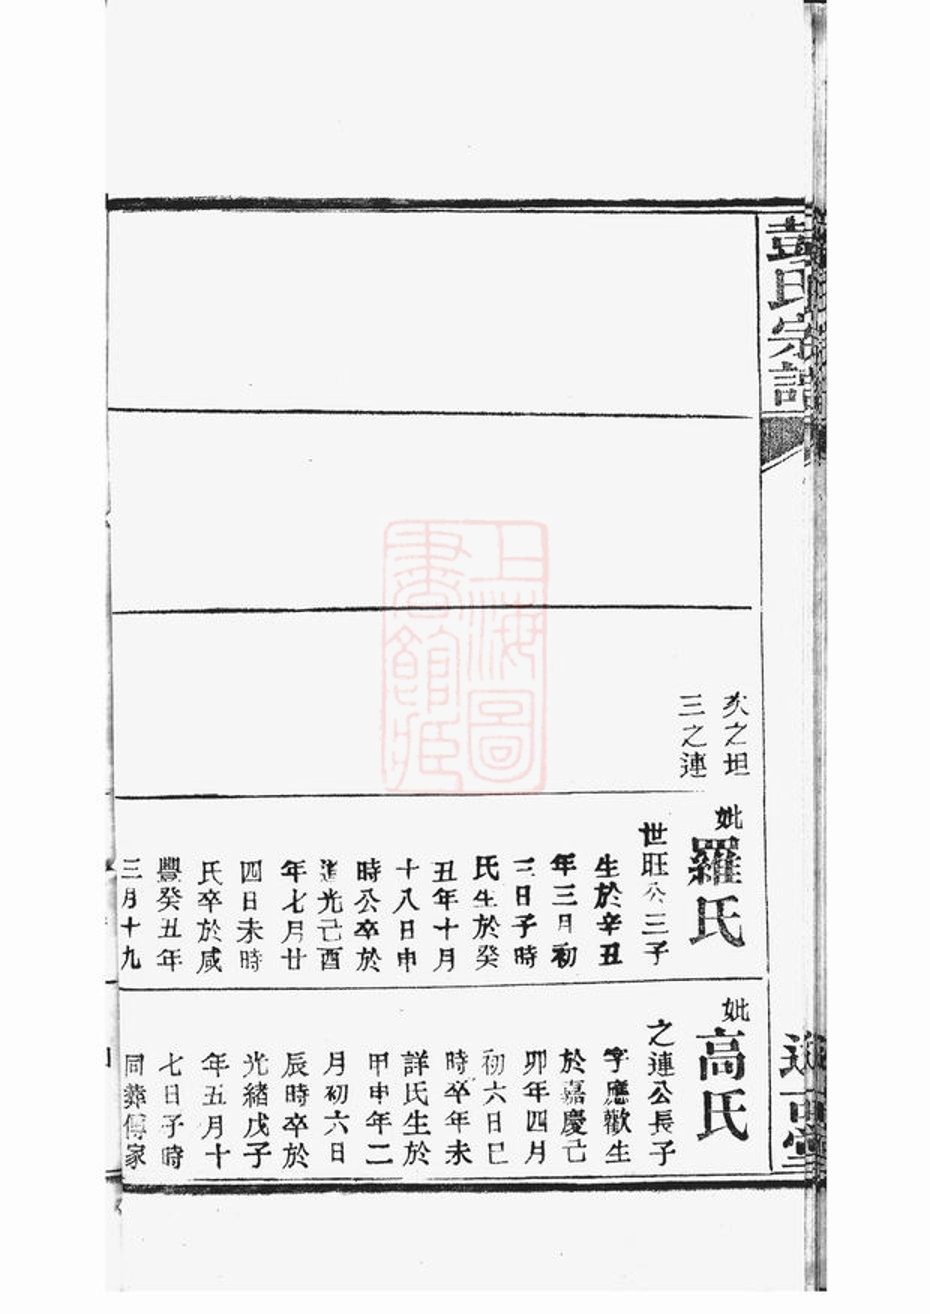 彭氏宗譜
亥之坦
三之連
妣羅氏
世旺公三子
生於辛丑
年三月初
三日子時
氏生於癸
丑年十月
十八日申
時公卒於
道光己酉
年七月廿
四日未時
氏卒於咸
豐癸丑年
三月十九
妣高氏
之連公長子
字應歡生
於嘉慶己
卯年四月
初六日巳
時卒年未
詳氏生於
甲申年二
月初六日
辰時卒於
光緒戊子
年五月十
七日子時
同葬傅家
上海圖
書館藏